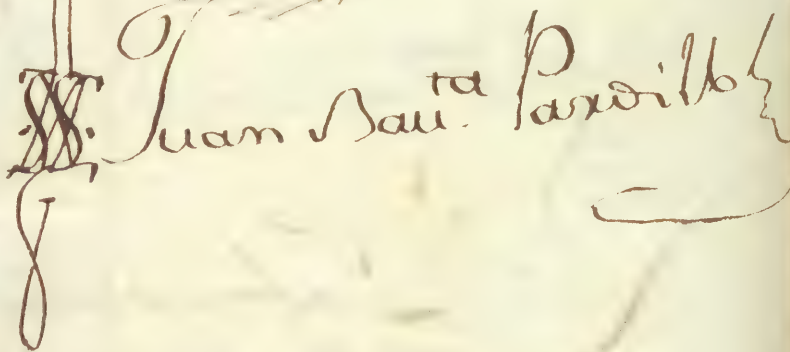 Juan Bau.ta Pardillo